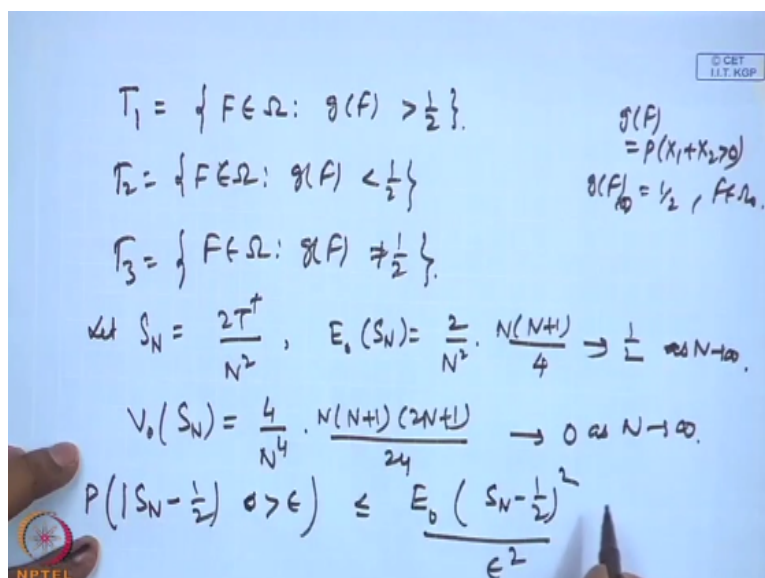 © CET
I.I.T. KGP
T₁ = { F ∈ Ω : g(F) > 1/2 }.
g(F)
= P(X₁+X₂>0)
T₂ = { F ∈ Ω : g(F) < 1/2 }
g(F) = 1/2 , F∈Ω₀.
T₃ = { F ∈ Ω : g(F) ≠ 1/2 }.
Let S_N = 2T⁺/N² , E₀(S_N) = 2/N² · N(N+1)/4 → 1/2 as N→∞.
V₀(S_N) = 4/N⁴ · N(N+1)(2N+1)/24 → 0 as N→∞.
P(|S_N − 1/2| > ε) ≤ E₀(S_N − 1/2)²/ε²
NPTEL